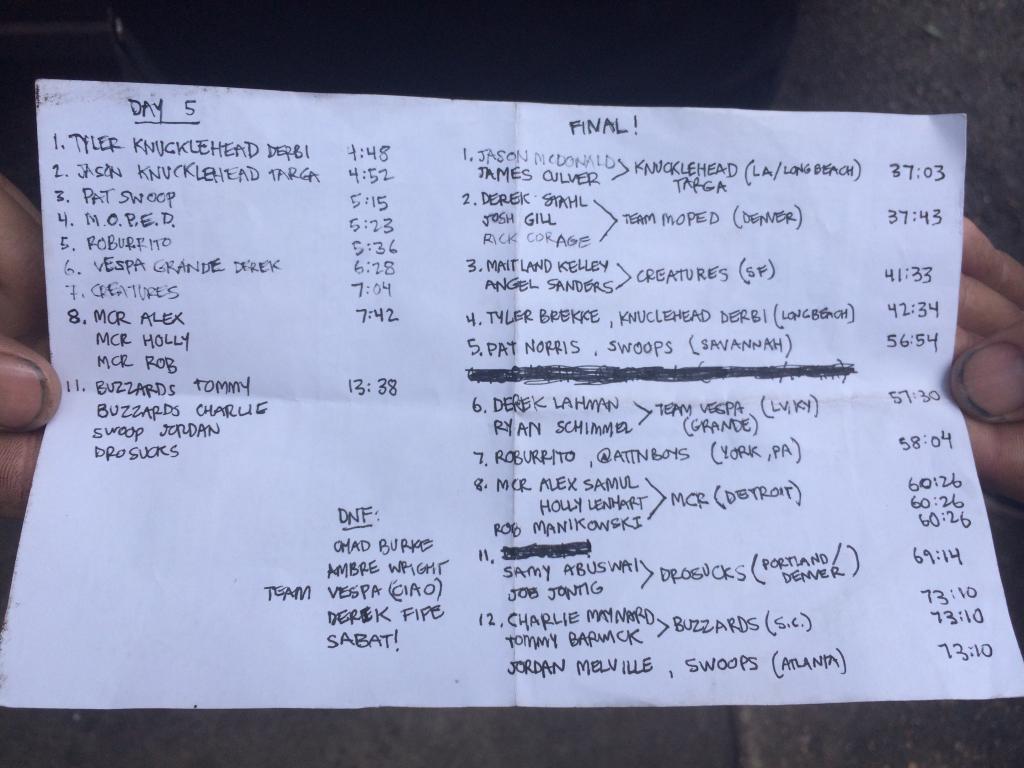 DAY 5
1. TYLER KNUCKLEHEAD DERBI 4:48
2. JASON KNUCKLEHEAD TARGA 4:52
3. PAT SWOOP 5:15
4. M.O.P.E.D. 5:23
5. ROBURRITO 5:36
6. VESPA GRANDE DEREK 6:28
7. CREATURES 7:04
8. MCR ALEX 7:42
MCR HOLLY
MCR ROB
11. BUZZARDS TOMMY 13:38
BUZZARDS CHARLIE
SWOOP JORDAN
DROSUCKS
DNF:
CHAD BURKE
AMBRE WRIGHT
TEAM VESPA (CIAO)
DEREK FIFE
SABAT!
FINAL!
1. JASON MCDONALD
JAMES CULVER > KNUCKLEHEAD (LA/LONGBEACH) 37:03
TARGA
2. DEREK STAHL
JOSH GILL > TEAM MOPED (DENVER) 37:43
RICK CORAGE
3. MAITLAND KELLEY
ANGEL SANDERS > CREATURES (SF) 41:33
4. TYLER BREKKE, KNUCLEHEAD DERBI (LONGBEACH) 42:34
5. PAT NORRIS, SWOOPS (SAVANNAH) 56:54
6. DEREK LAHMAN > TEAM VESPA (LV,KY) 57:30
RYAN SCHIMMEL (GRANDE)
7. ROBURRITO, @ATTNBOYS (YORK, PA) 58:04
8. MCR ALEX SAMUL 60:26
HOLLY LENHART > MCR (DETROIT) 60:26
ROB MANIKOWSKI 60:26
11.
SAMY ABUSWAI > DROSUCKS (PORTLAND/DENVER) 69:14
JOB JONTIG
12. CHARLIE MAYNARD > BUZZARDS (S.C.) 73:10
TOMMY BARWICK 73:10
JORDAN MELVILLE, SWOOPS (ATLANTA) 73:10